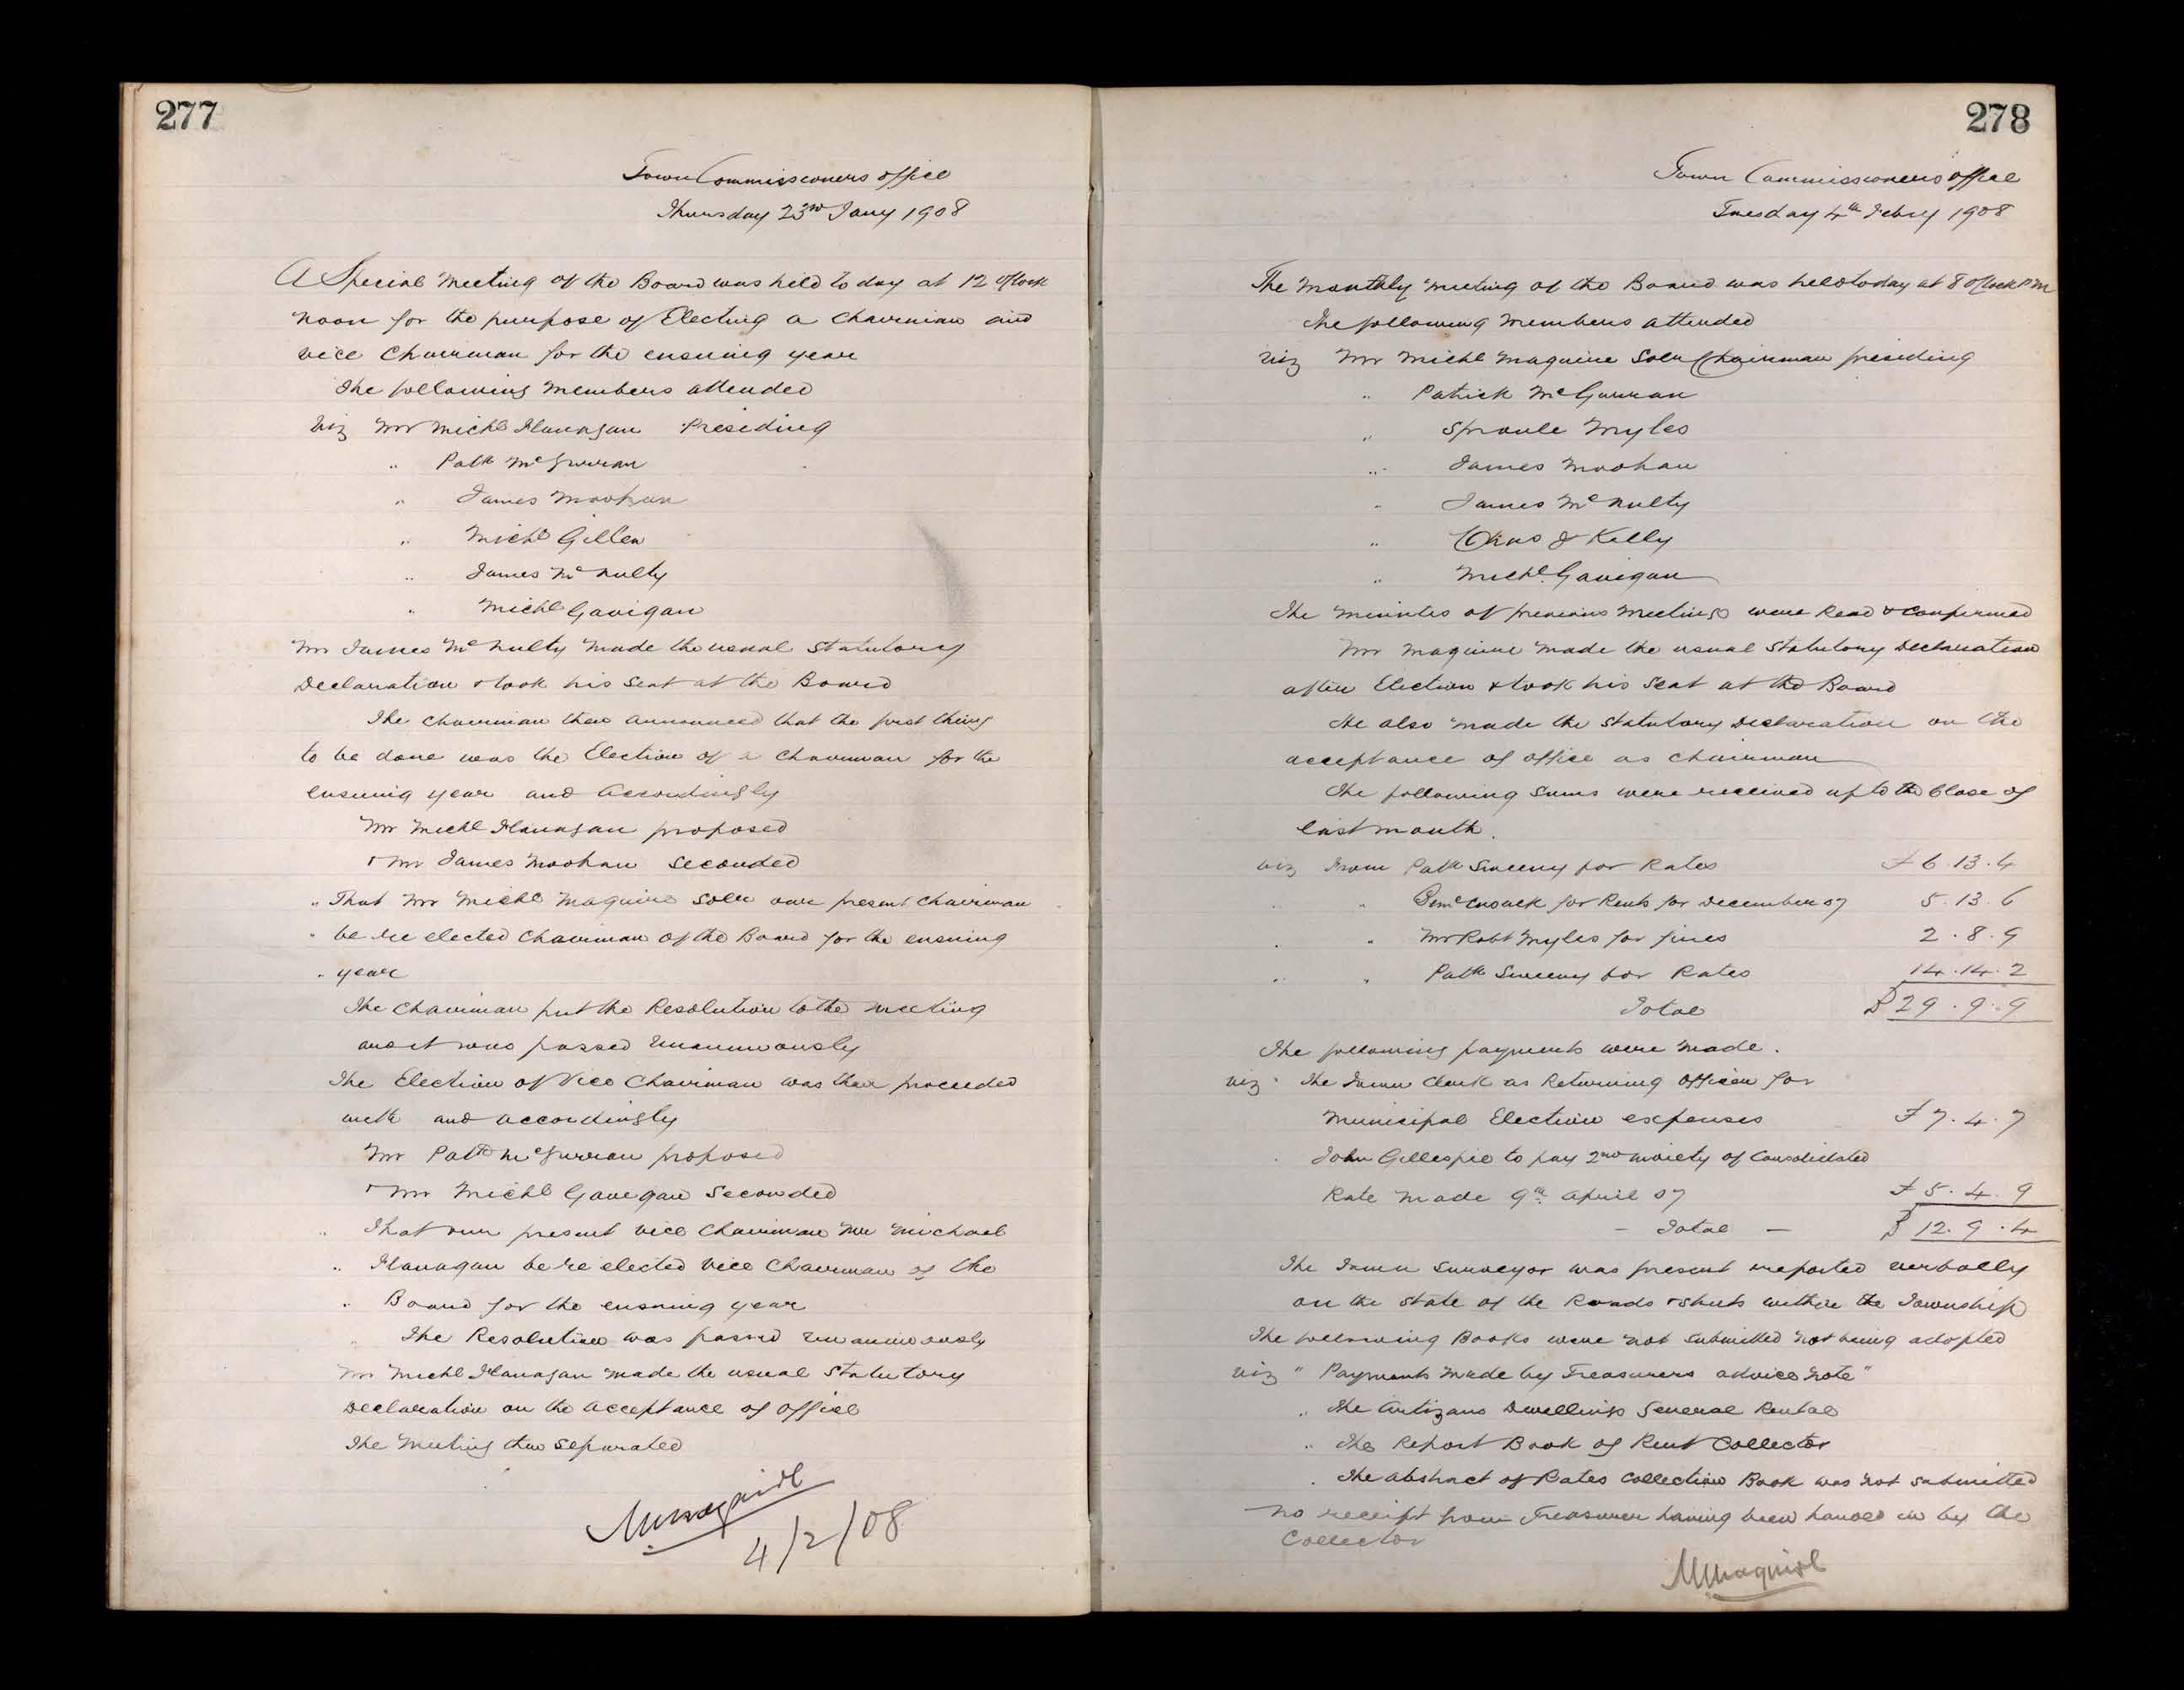 277
Town Commissioners office
Thursday 23rd Jany 1908
A Special Meeting of the Board was held to day at 12 O'Clock
noon for the purpose of Electing a Chairman and
vice Chairman for the ensuing year
The following Members attended
Viz Mr Michl Flanagan Presiding
" Patk McGurran
" James Moohan
" Michl Gillen
" James McNulty
" Michl Gavigan
Mr James McNulty made the usual Statutory
Declaration & took his Seat at the Board
The Chairman then announced that the first thing
to be done was the Election of a Chairman for the
ensuing year and Accordingly
Mr Michl Flanagan proposed
& Mr James Moohan Seconded
" That Mr Michl Maguire Solr our present Chairman
" be re elected Chairman of the Board for the ensuing
" year
The Chairman put the Resolution to the Meeting
and it was passed Unanimously
The Election of Vice Chairman was then proceeded
with and accordingly
Mr Patk McGurran proposed
& Mr Michl Gavegan Seconded
" That our present Vice Chairman Mr Michael
" Flanagan be re elected Vice Chairman of the
" Board for the ensuing year
" The Resolution was passed unanimously
Mr Michl Flanagan made the usual Statutory
Declaration on the acceptance of Office
The Meeting then Separated
MMaguire
4/2/08
278
Town Commissioners office
Tuesday 4th Febry 1908
The Monthly Meeting of the Board was held today at 8 O'Clock PM
The following Members attended
Viz Mr Michl Maguire Solr Chairman presiding
" Patrick McGurran
" Sproule Myles
" James Moohan
" James McNulty
" Chas J Kelly
" Michl Gavigan
The Minutes of previous Meetings were Read & Confirmed
Mr Maguire made the usual Statutory Declaration
after Election & took his Seat at the Board
He also made the Statutory Declaration on the
acceptance of office as Chairman
The following Sums were received up to the Close of
last month.
viz From Patk Sweeny for Rates £6.13.4
" " Cusack for Rents for December 07 5.13.6
" " Mr Robt Myles for fines 2.8.9
" " Patk Sweeny for Rates 14.14.2
Total £29.9.9
The following payments were made.
viz The Town Clerk as Returning Officer for
Municipal Election expenses £7.4.7
John Gillespie to pay 2nd moiety of Consolidated
Rate Made 9th April 07 £5.4.9
- Total - £12.9.4
The Town Surveyor was present & reported verbally
on the State of the Roads & Streets within the Township
The following Books were not submitted not being adopted
viz " Payments Made by Treasurers advice Note "
" The Artizans Dwellings General Rental
" The Report Book of Rent Collector
. The abstract of Rates Collection Book was not submitted
no receipt from Treasurer having been handed in by the
Collector
MMaguire